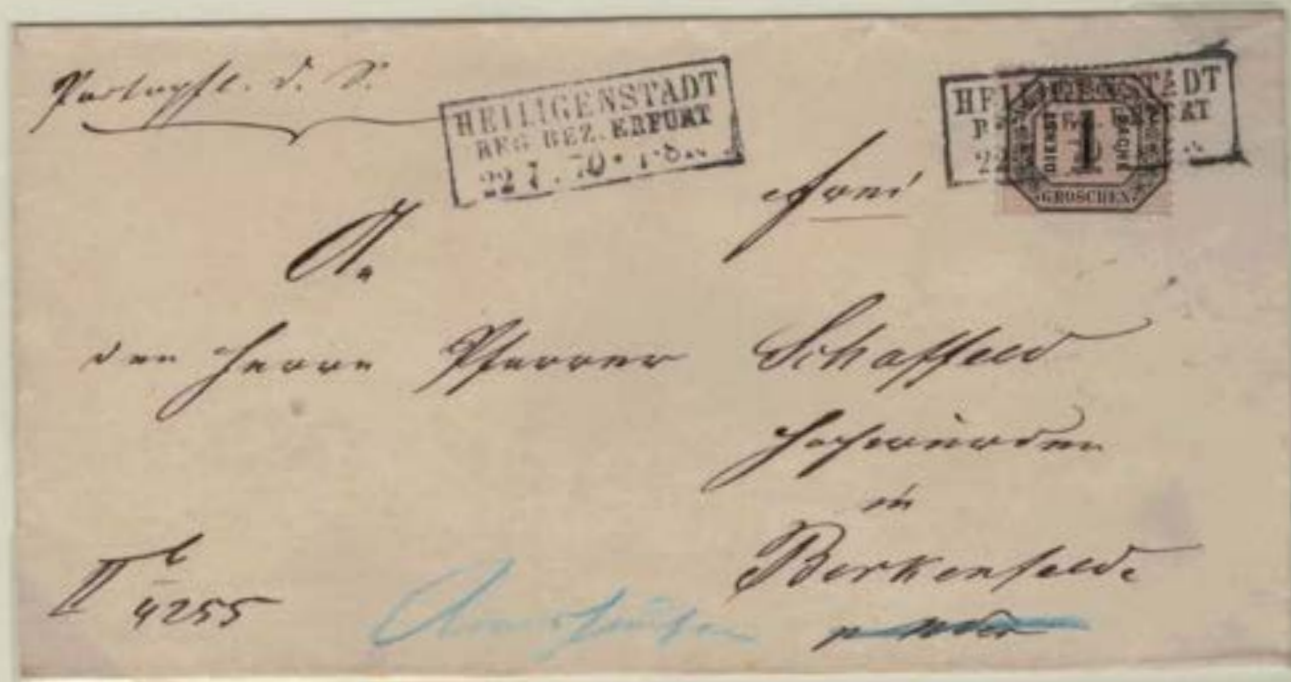 Portopfl. D. S.
HEILIGENSTADT
REG. BEZ. ERFURT
22 7. 70 *
HEILIGENSTADT
REG. BEZ. ERFURT
22
1
DIENST SACHE
GROSCHEN
frei
An
den Herrn Pfarrer Schaffeld
Hochwürden
in
Birkenfelde
II b
4255